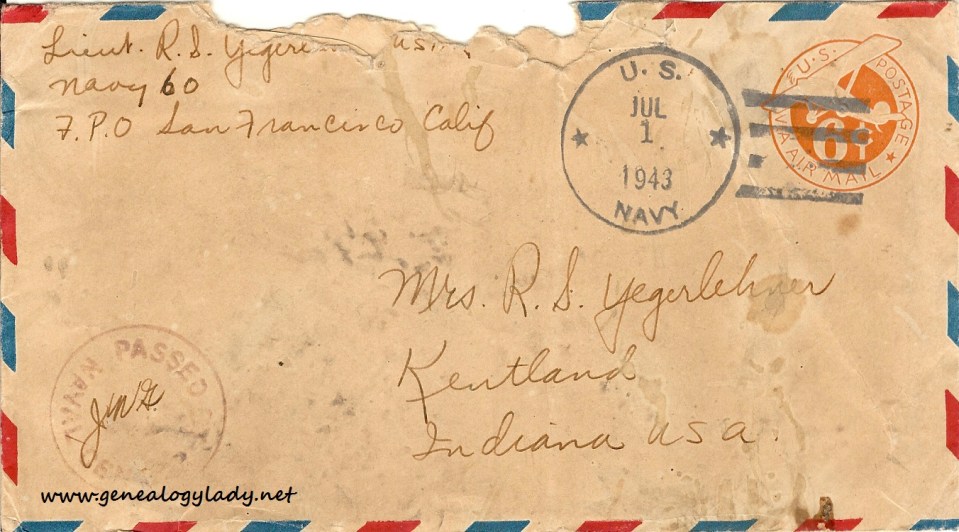 Lieut. R. S. Yegerle
Navy 60
F.P.O San Francisco Calif
U.S.
JUL
1
1943
NAVY
U.S. POSTAGE
6¢
VIA AIR MAIL
Mrs. R. S. Yegerlehner
Kentland
Indiana USA.
PASSED
NAVAL
www.genealogylady.net